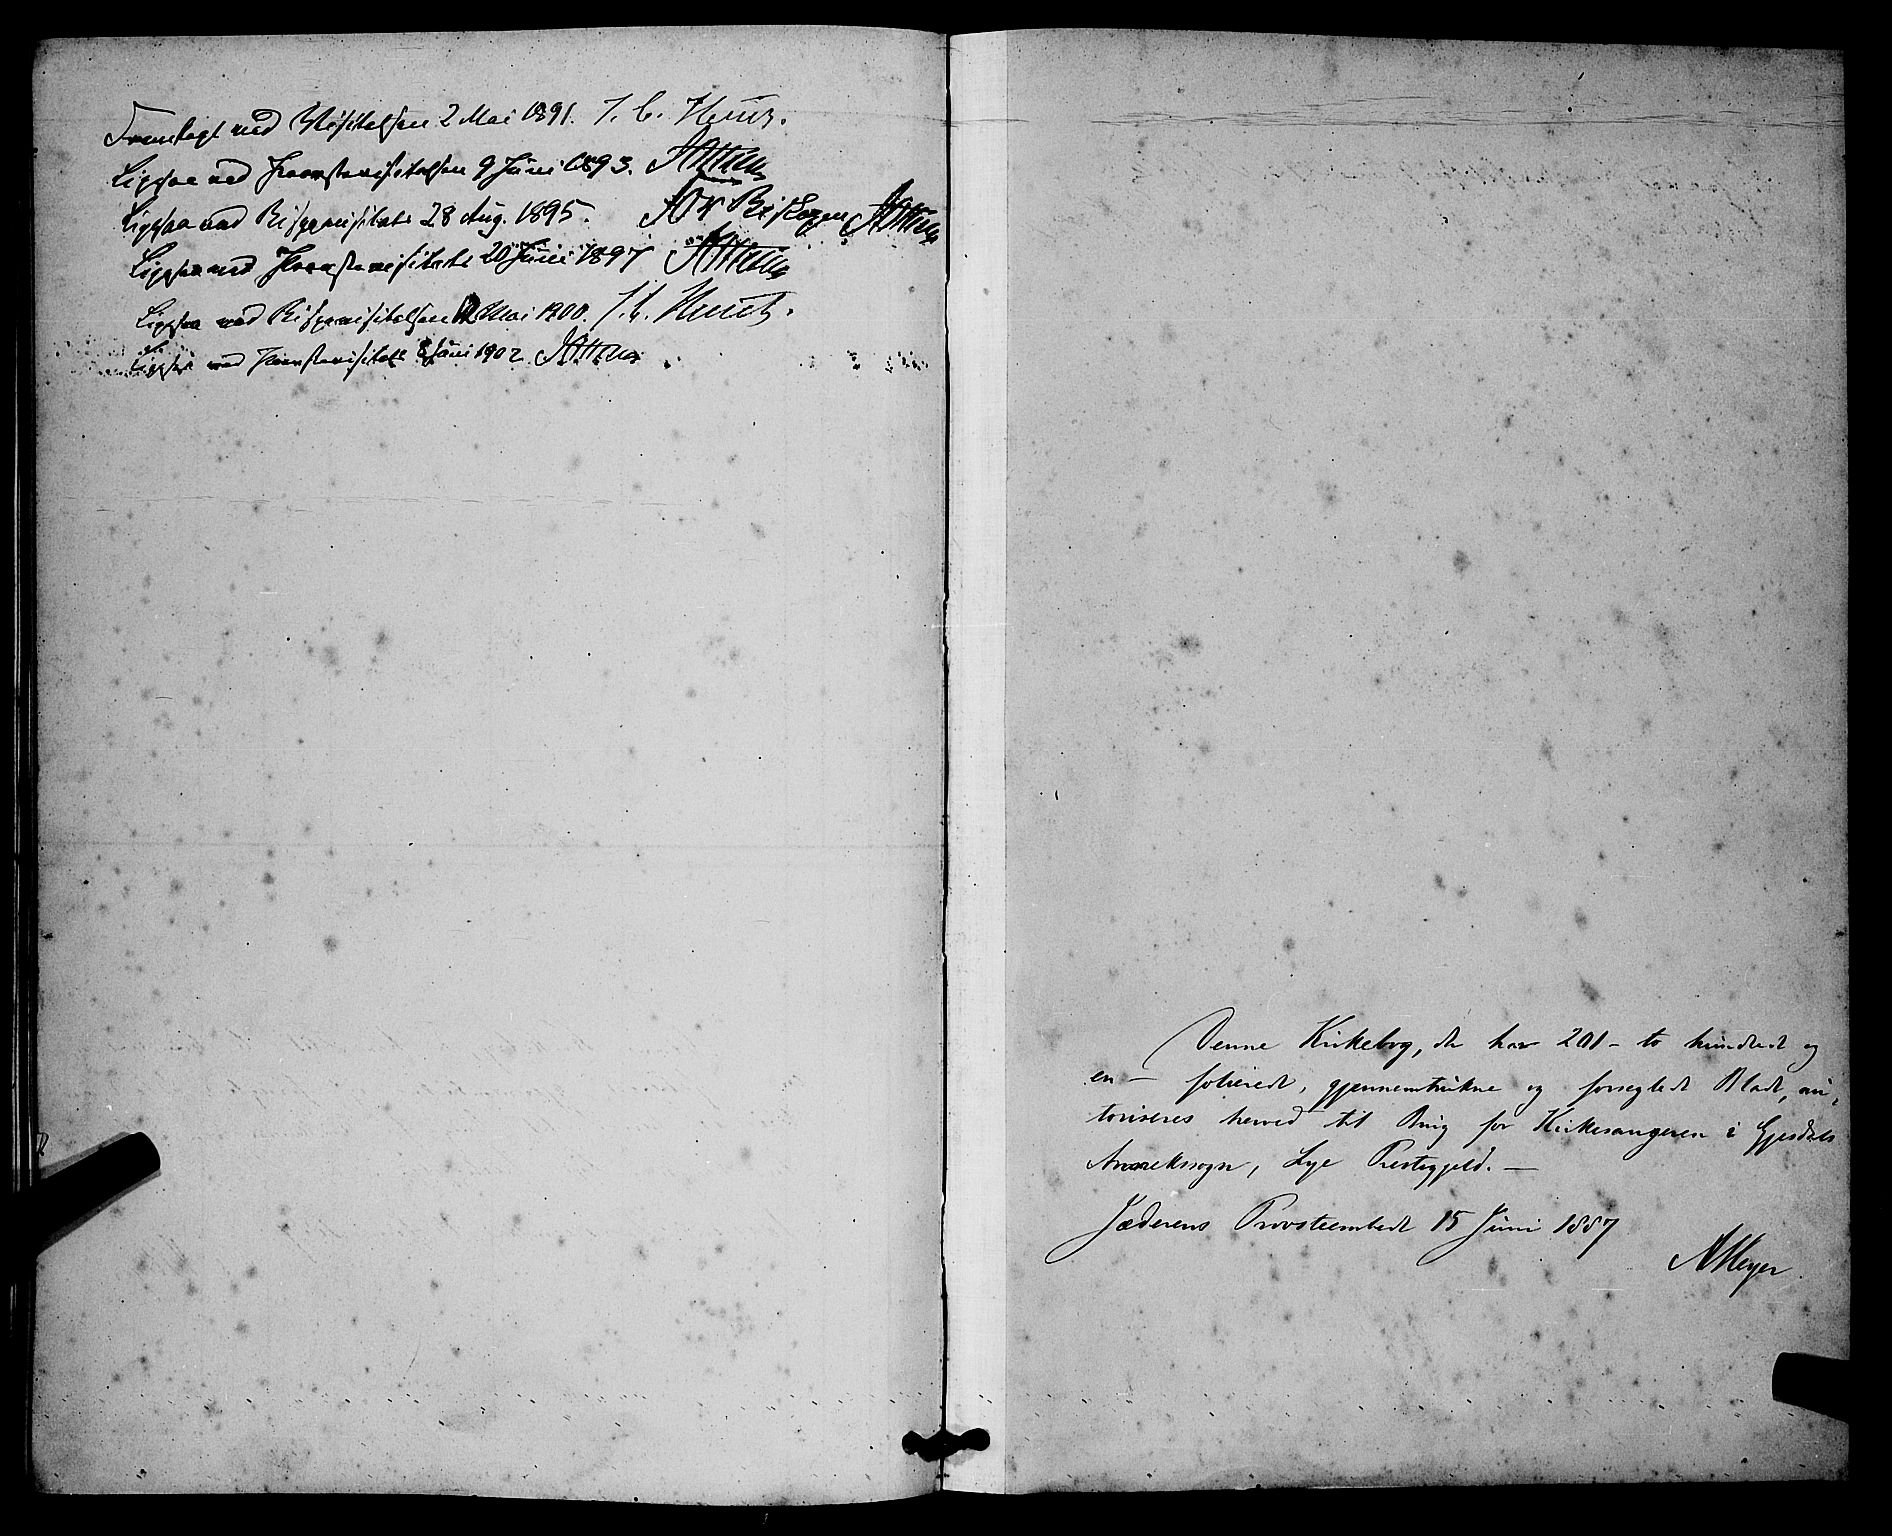 Fremlagt ved Visitatsen 2 Mai 1891. J. C. Heuch.
Ligesaa ved Provstevisitatsen 9 Juni 1893. AMeyer
Ligesaa ved Bispevisitats 28 Aug. 1895. For Biskopen AMeyer
Ligesaa ved Provstevisitats 20 Juni 1897 AMeyer
Ligesaa ved Bispevisitatsen Mai 1900. J. C. Heuch.
Ligesaa ved Provstevisitats 8 Juni 1902 AMeyer
Denne Kirkebog, der har 201 – to hundredt og
en – folierede, gjennemtrukne og forseglede Blade, au-
toriseres herved til Brug for Kirkesangeren i Gjesdals
Annekssogn, Lye Prestegjeld. –
Jæderens Provsteembede 15 Juni 1887
AMeyer